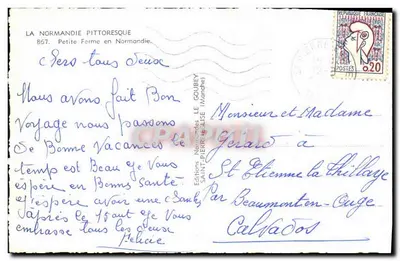 LA NORMANDIE PITTORESQUE
857. Petite Ferme en Normandie.
Chers tous deux
Nous avons fait Bon
voyage nous passons
De Bonne Vacances le
temp est Beau Je Vous
espère en Bonne Santé
J'espère avoir une
après le 15 aut Je Vous
embrasse tous les deux
Editions Normandes LE GOUBEY
SAINT-PIERRE-EGLISE (Manche)
REPUBLIQUE FRANCAISE
POSTES 0,20
Monsieur et Madame
Gérard à
St Etienne la Thillaye
Par Beaumont-en-Auge
Calvados